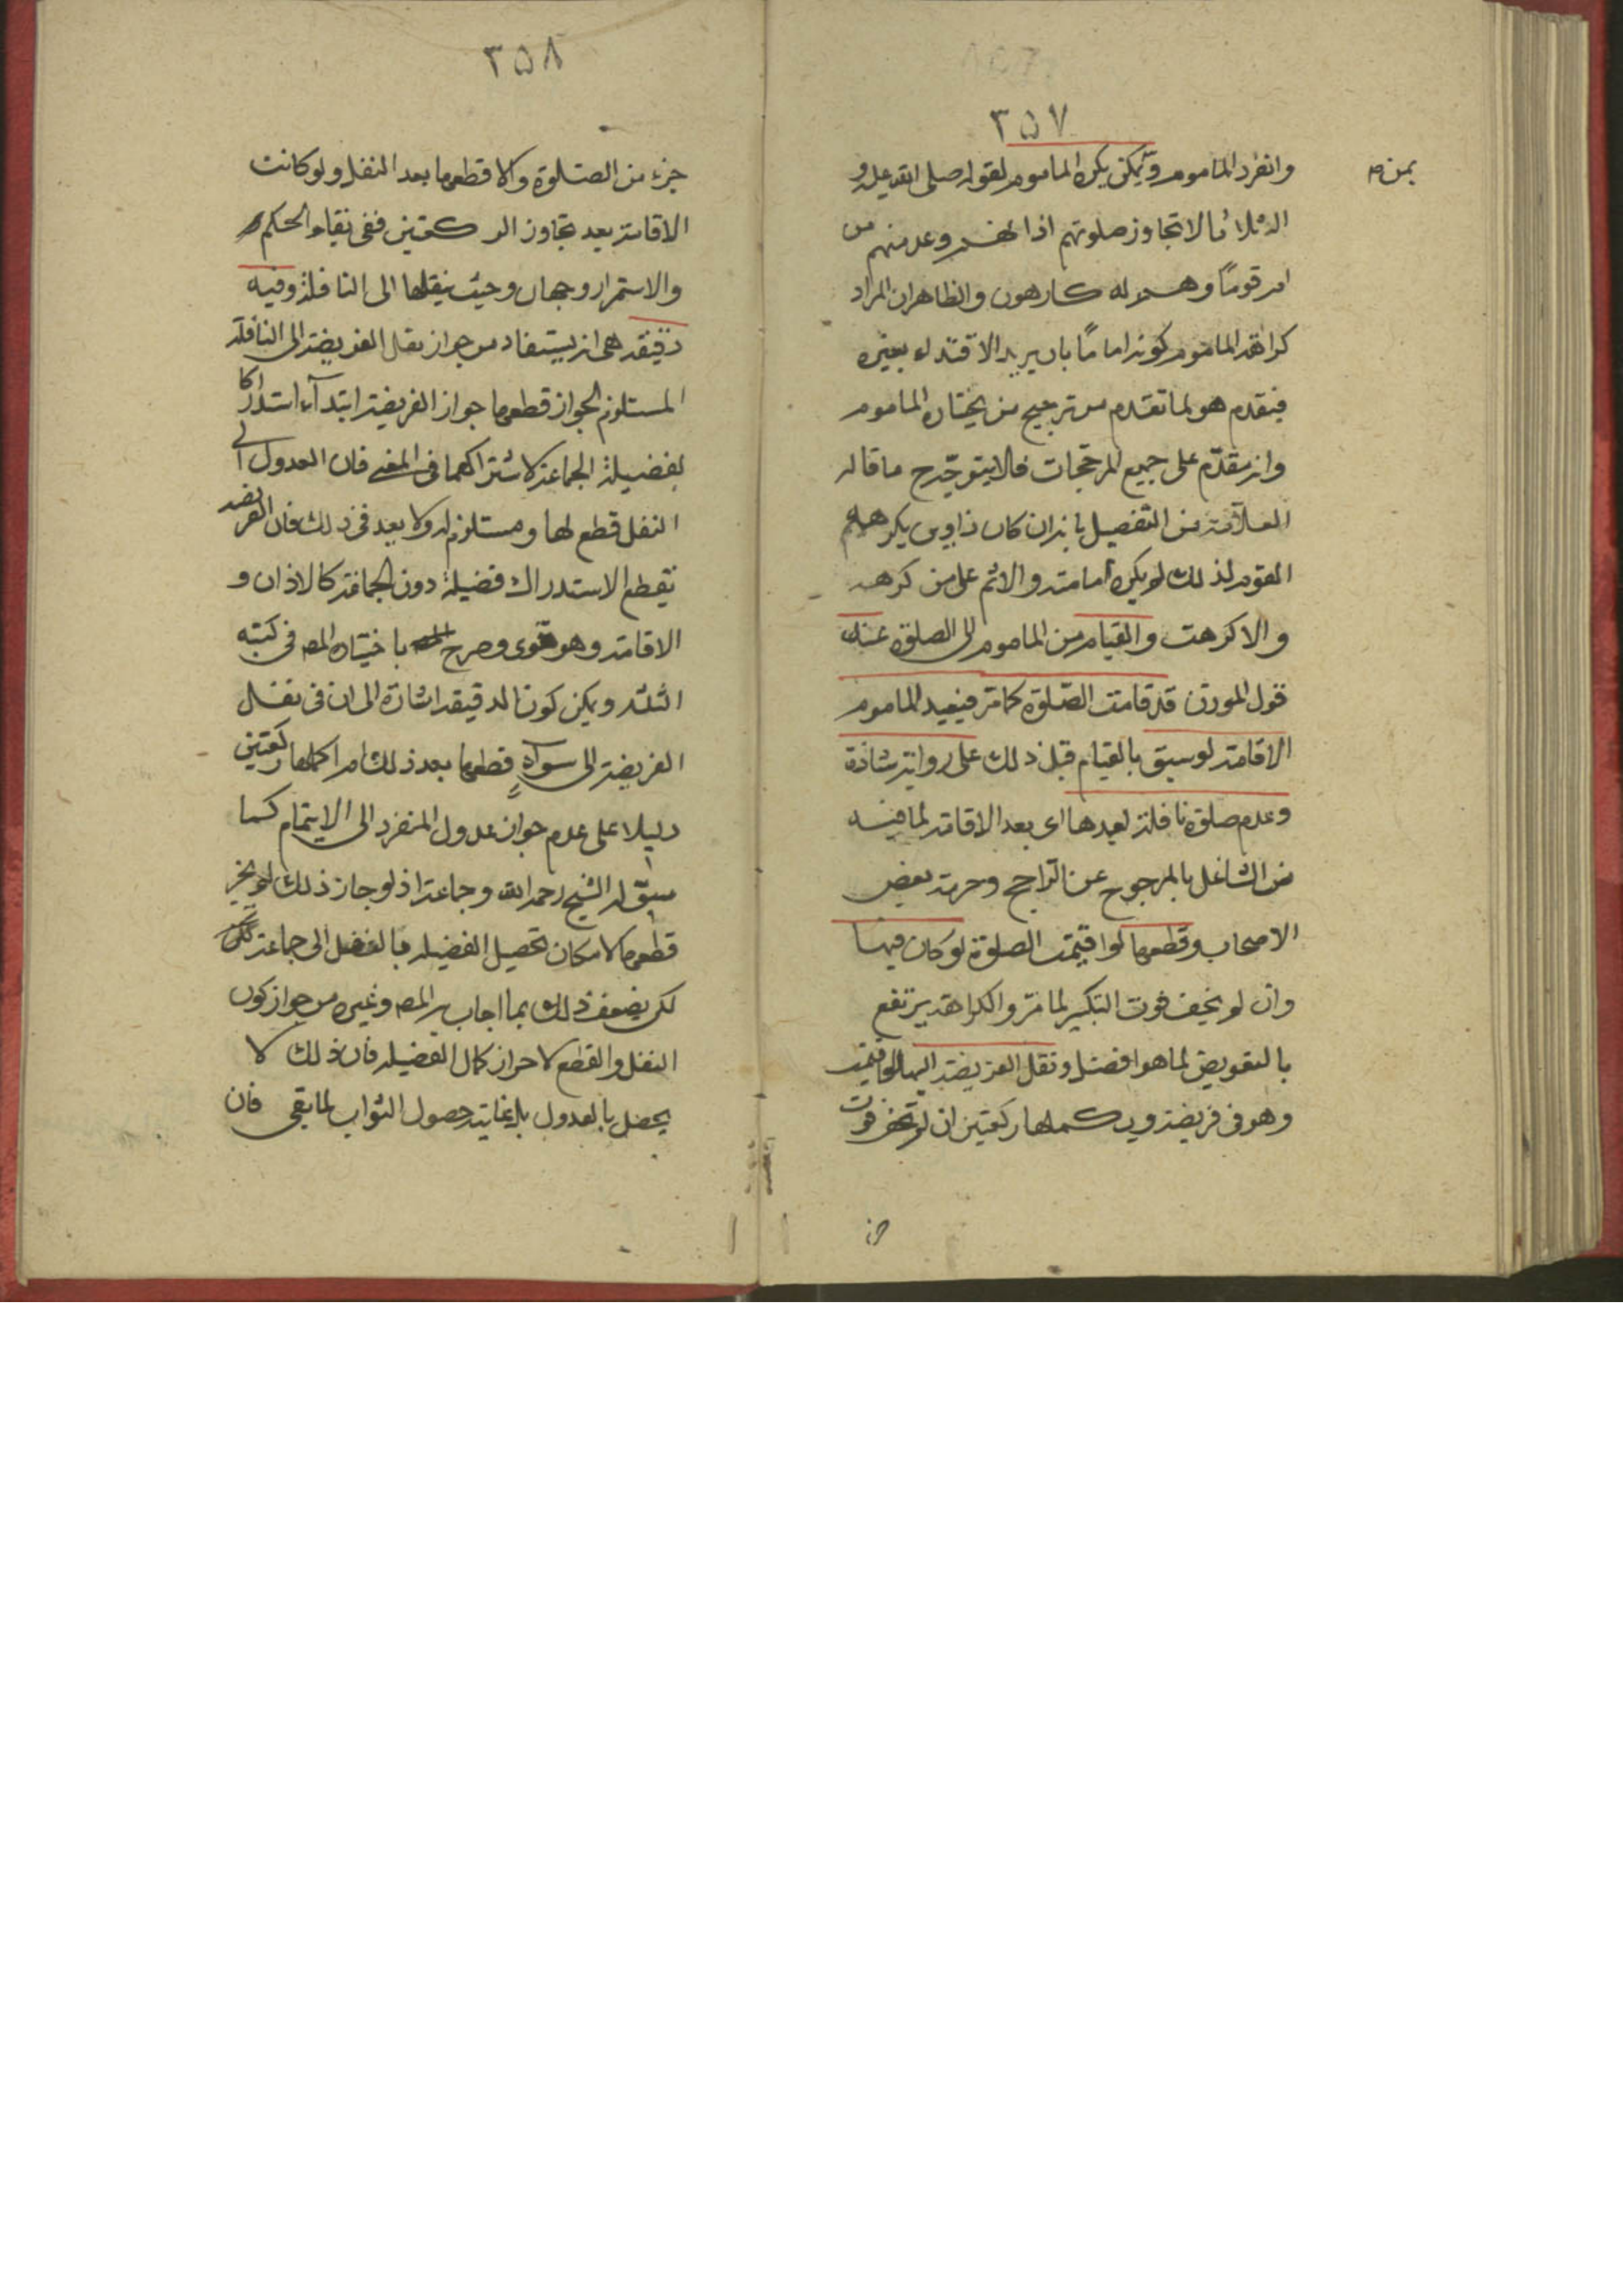 ٣٥٧
وانفرد المأموم و يمكن يكره المأموم لقوله صلى الله عليه و
بمن ص
الثلاثة لا تجاوز صلوتهم اذانهم وعد منهم من
ام قومًا وهم له كارهون والظاهر ان المراد
كراهة المأموم كونه امامًا بان يريد الاقتداء بغيره
فيقدم هو لما تقدم من ترجيح من يختاره المأموم
وانه مقدّم على جميع المرجحات فلا يتوجّه ح ما قاله
العلّامة من التفصيل بانه ان كان ذا دين يكرهه
القوم لذلك لم يكره امامته والاثم على من كرهه
والا كرهت والقيام من المأموم الى الصلوة عند
قول المؤذن قد قامت الصّلوة كما مر فيعيد المأموم
الاقامة لو سبق بالقيام قبل ذلك على رواية شاذة
وعدم صلوة نافلة بعدها اى بعد الاقامة لما فيه
من التشاغل بالمرجوح عن الراجح وحرمه بعض
الاصحاب وقطعها لو اقيمت الصلوة لو كان فيها
وان لم يخف فوت التكبير لما مرّ والكراهة يرتفع
بالتفويض لما هو افضل ونقل الفريضة اليها لو اقيمت
وهو فى فريضة ويكملها ركعتين ان لم يخف فوت
٣٥٨
جزء من الصّلوة والا قطعها بعد النقل ولو كانت
الاقامة بعد تجاوز الركعتين ففى بقاء الحكم
والاستمرار وجهان وحيث ينقلها الى النافلة وفيه
دقيقه هى انه يستفاد من جواز نقل الفريضة الى النافلة
المستلزم لجواز قطعها جواز الفريضة ابتدآء استدراكا
لفضيلة الجماعة لاشتراكهما فى المعنى فان العدول الى
النفل قطع لها ومستلزم له ولا بعد فى ذلك فان الفريضه
تقطع لاستدراك فضيلة دون الجماعة كالاذان و
الاقامة وهو قوى وصرح باختياره المص فى كتبه
الثلثه ويمكن كون الدقيقه اشارة الى ان فى نقل
الفريضة الى سواه قطعها بعد ذلك ام اكملها ركعتين
دليلا على عدم جواز عدول المنفرد الى الايتمام كما
سبق له الشيخ رحمه الله وجماعة اذ لو جاز ذلك لم يجز
قطعها لامكان تحصيل الفضيله بالنقل الى جماعة
لكن يضعف ذلك بما اجاب به المص وغيره من جواز كون
النفل والقطع لاحراز كمال الفضيله فان ذلك لا
يحصل بالعدول بل غايته حصول الثواب لما بقى فان